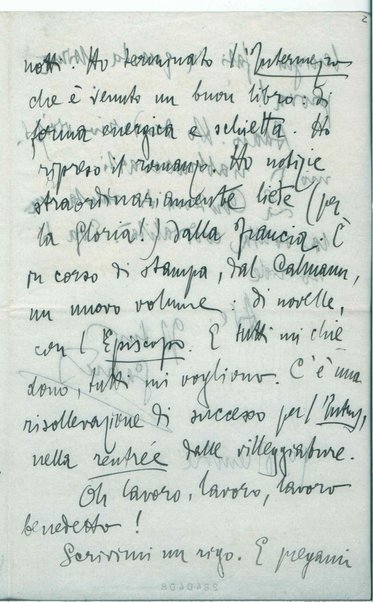 notti. Ho terminato l'Intermezzo
che è venuto un buon libro: di
forma energica e schietta. Ho
ripreso il romanzo. Ho notizie
straordinariamente liete (per
la Gloria!) dalla Francia. È
in corso di stampa, dal Calmann,
un nuovo volume: di novelle,
con l'Episcopo. E tutti mi chie
dono, tutti mi vogliono. C'è una
risollevazione di successo per l'
nella rentrée dalle villeggiature.
Oh lavoro, lavoro, lavoro
benedetto!
Scrivimi un rigo. E pregami